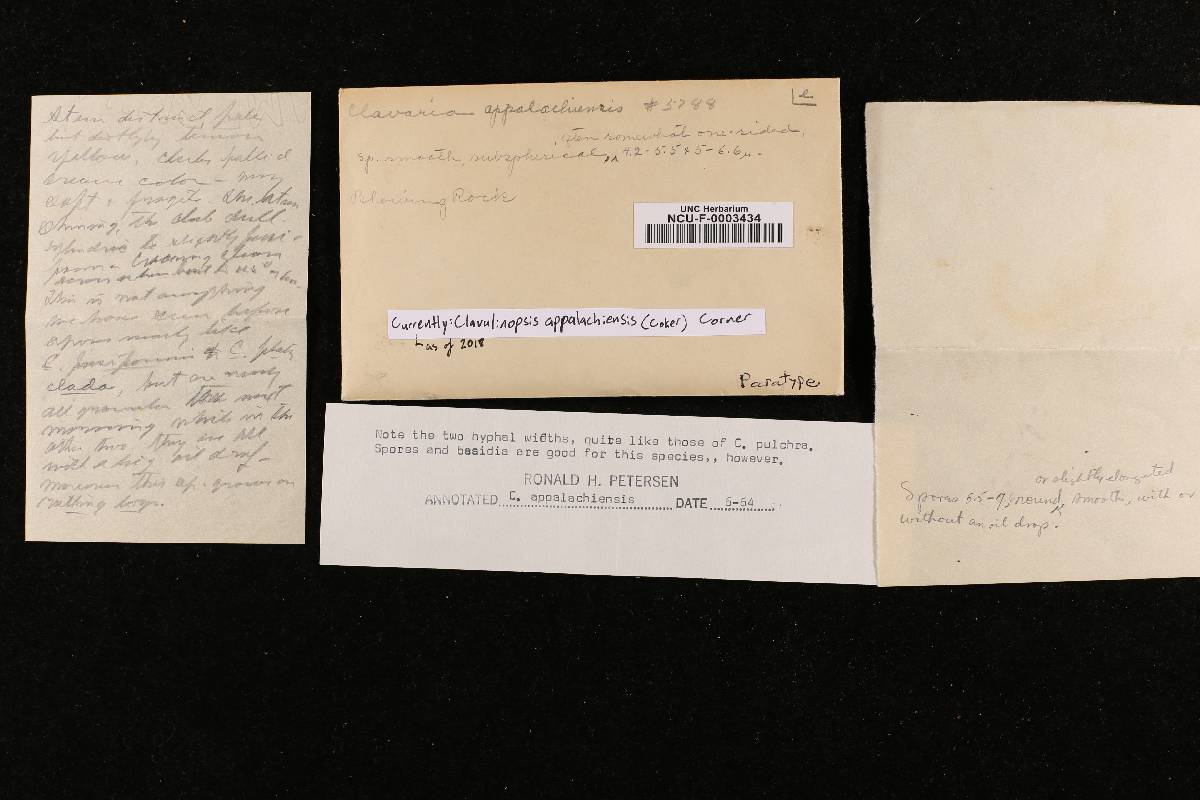 Stem distinct, pale
but distinctly lemon
yellow, clubs pallid
cream color - very
soft & fragile. the stem
shining, the club dull.
to slightly fusi-
form -
This is not anything
we have seen before
spores nearly like
C. & C. platy
clada, but are nearly
all granular the next
morning while in the
other two they are all
with a big oil drop -
moreover this sp. grows on
rotting logs.
Clavaria appalachiensis #5788
e
often somewhat one-sided,
sp. smooth, subspherical, 4.2-5.5 x 5-6.6µ.
Blowing Rock
UNC Herbarium
NCU-F-0003434
Currently: Clavulinopsis appalachiensis (Coker) Corner
as of 2018
Paratype
Note the two hyphal widths, quite like those of C. pulchra.
Spores and basidia are good for this species,, however.
RONALD H. PETERSEN
ANNOTATED C. appalachiensis DATE 6-64
or slightly elongated
Spores 5.5-7, round, smooth, with or
without an oil drop.